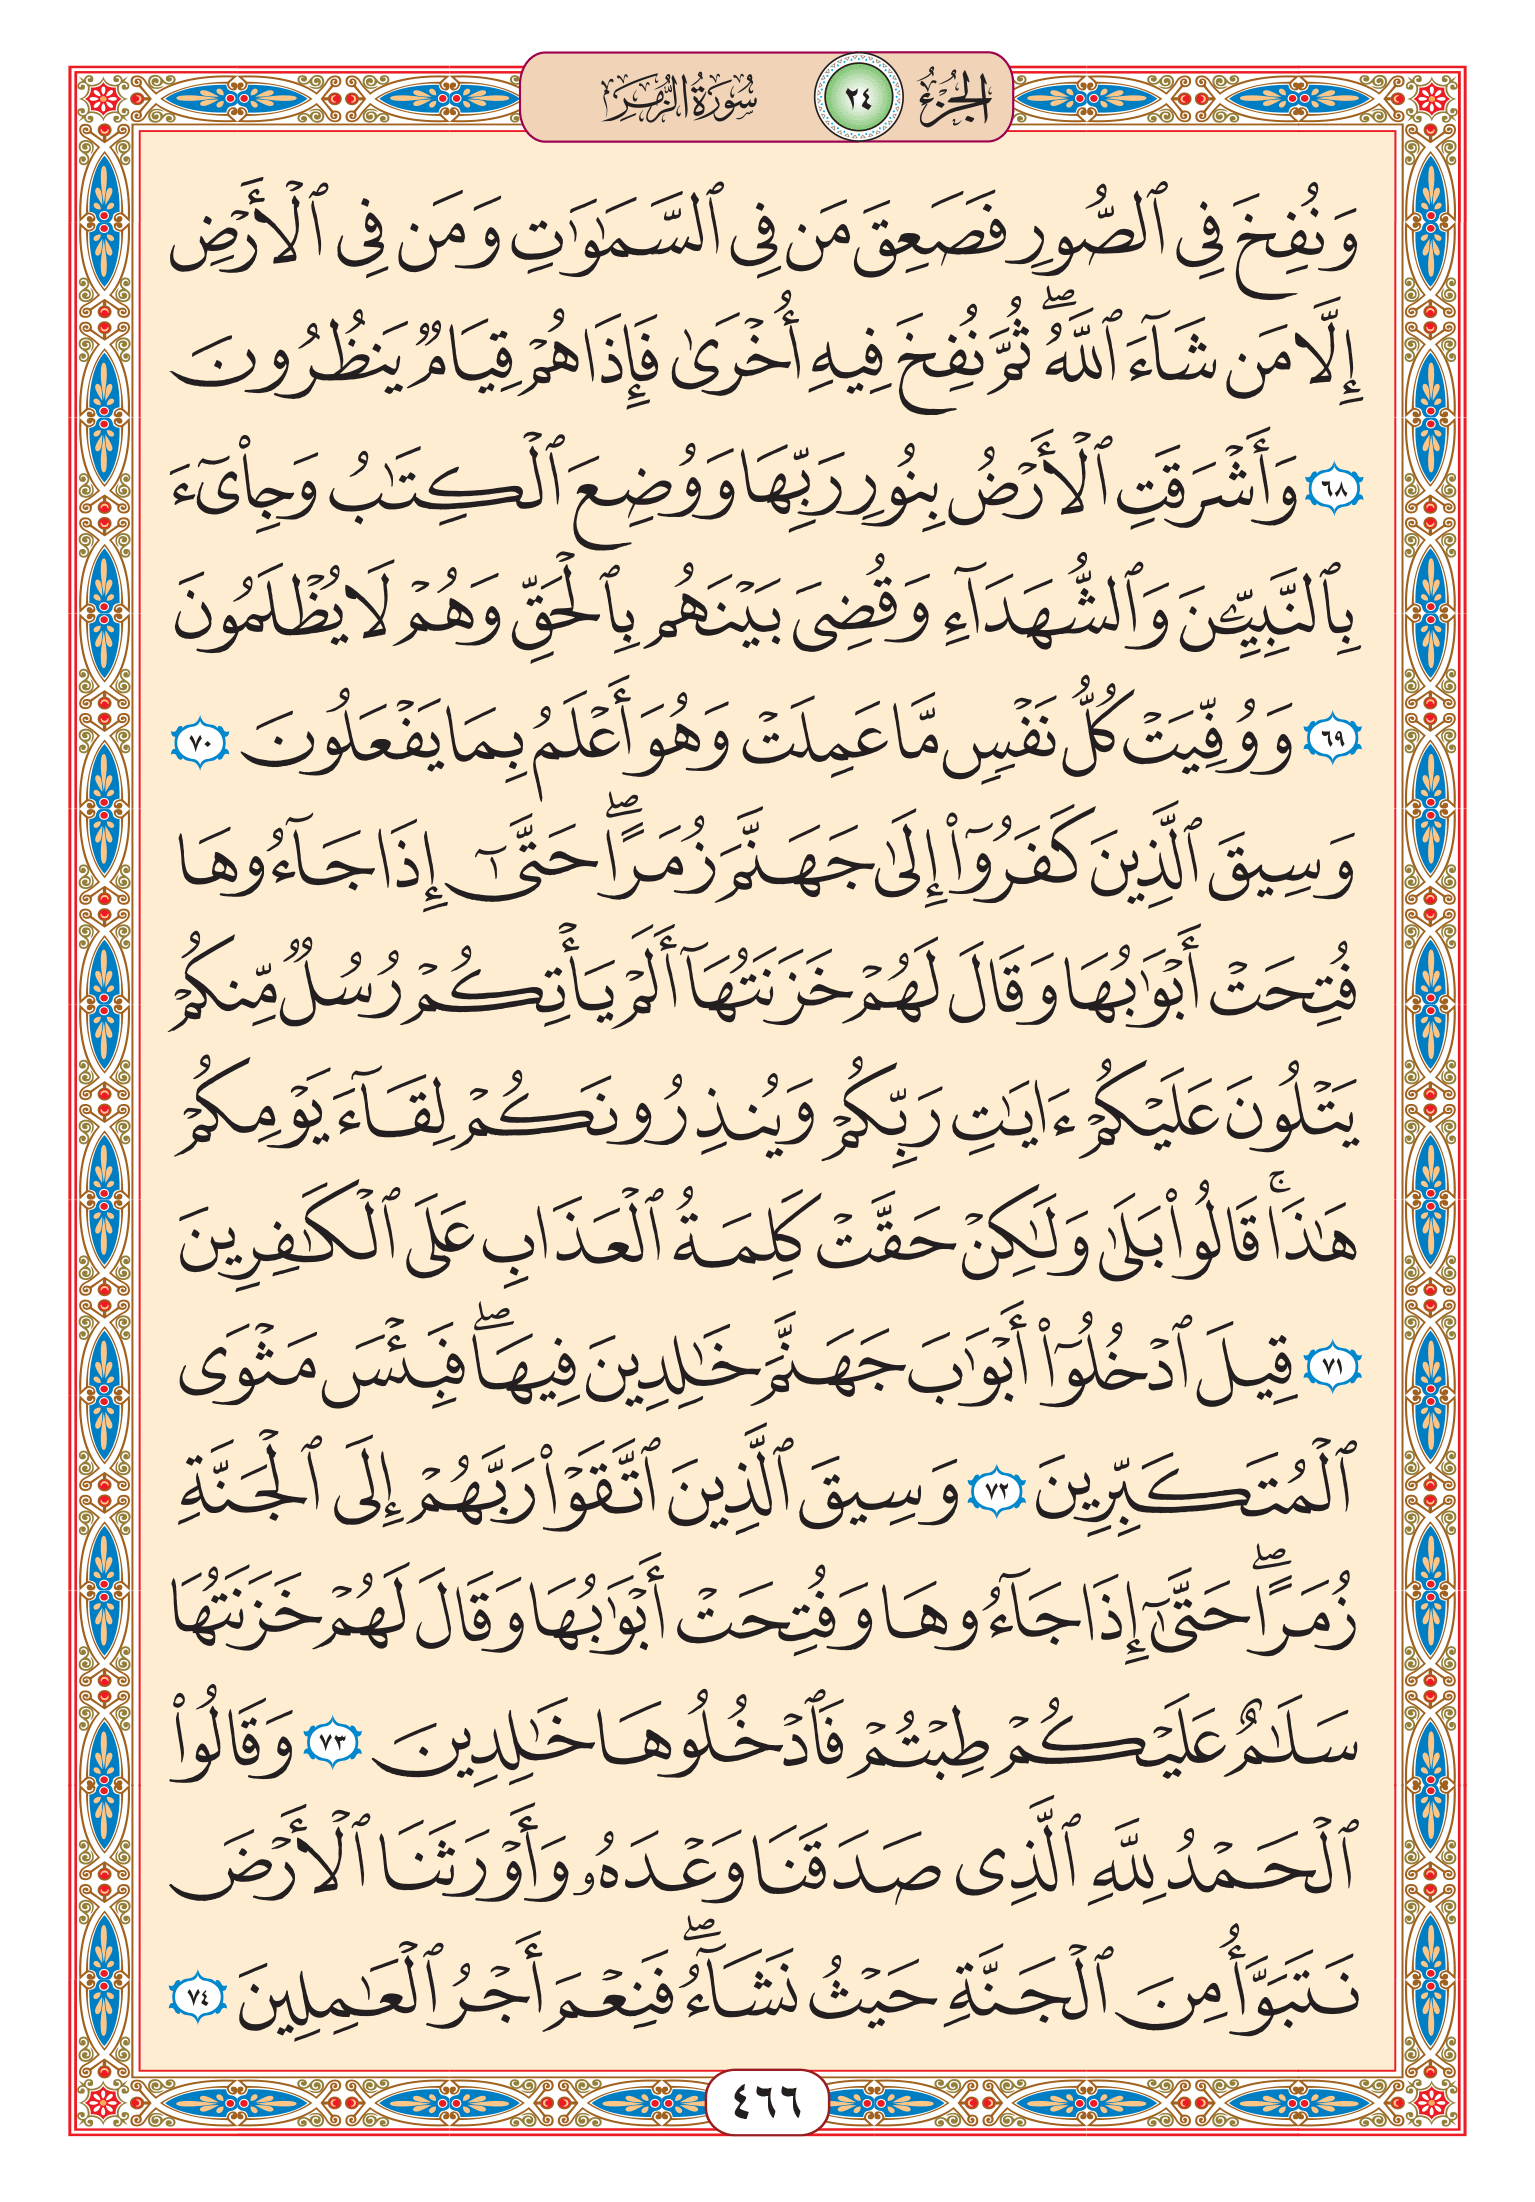 الجزء ٢٤ سورة الزمر
وَنُفِخَ فِى ٱلصُّورِ فَصَعِقَ مَن فِى ٱلسَّمَٰوَٰتِ وَمَن فِى ٱلْأَرْضِ
إِلَّا مَن شَآءَ ٱللَّهُ ۖ ثُمَّ نُفِخَ فِيهِ أُخْرَىٰ فَإِذَا هُمْ قِيَامٌ يَنظُرُونَ
٦٨ وَأَشْرَقَتِ ٱلْأَرْضُ بِنُورِ رَبِّهَا وَوُضِعَ ٱلْكِتَٰبُ وَجِا۟ىٓءَ
بِٱلنَّبِيِّۦنَ وَٱلشُّهَدَآءِ وَقُضِىَ بَيْنَهُم بِٱلْحَقِّ وَهُمْ لَا يُظْلَمُونَ
٦٩ وَوُفِّيَتْ كُلُّ نَفْسٍ مَّا عَمِلَتْ وَهُوَ أَعْلَمُ بِمَا يَفْعَلُونَ ٧٠
وَسِيقَ ٱلَّذِينَ كَفَرُوٓا۟ إِلَىٰ جَهَنَّمَ زُمَرًا ۖ حَتَّىٰٓ إِذَا جَآءُوهَا
فُتِحَتْ أَبْوَٰبُهَا وَقَالَ لَهُمْ خَزَنَتُهَآ أَلَمْ يَأْتِكُمْ رُسُلٌ مِّنكُمْ
يَتْلُونَ عَلَيْكُمْ ءَايَٰتِ رَبِّكُمْ وَيُنذِرُونَكُمْ لِقَآءَ يَوْمِكُمْ
هَٰذَا ۚ قَالُوا۟ بَلَىٰ وَلَٰكِنْ حَقَّتْ كَلِمَةُ ٱلْعَذَابِ عَلَى ٱلْكَٰفِرِينَ
٧١ قِيلَ ٱدْخُلُوٓا۟ أَبْوَٰبَ جَهَنَّمَ خَٰلِدِينَ فِيهَا ۖ فَبِئْسَ مَثْوَى
ٱلْمُتَكَبِّرِينَ ٧٢ وَسِيقَ ٱلَّذِينَ ٱتَّقَوْا۟ رَبَّهُمْ إِلَى ٱلْجَنَّةِ
زُمَرًا ۖ حَتَّىٰٓ إِذَا جَآءُوهَا وَفُتِحَتْ أَبْوَٰبُهَا وَقَالَ لَهُمْ خَزَنَتُهَا
سَلَٰمٌ عَلَيْكُمْ طِبْتُمْ فَٱدْخُلُوهَا خَٰلِدِينَ ٧٣ وَقَالُوا۟
ٱلْحَمْدُ لِلَّهِ ٱلَّذِى صَدَقَنَا وَعْدَهُۥ وَأَوْرَثَنَا ٱلْأَرْضَ
نَتَبَوَّأُ مِنَ ٱلْجَنَّةِ حَيْثُ نَشَآءُ ۖ فَنِعْمَ أَجْرُ ٱلْعَٰمِلِينَ ٧٤
٤٦٦